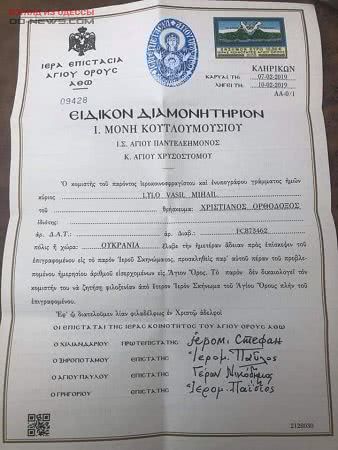 ВЗГЛЯД ИЗ ОДЕССЫ
OD-NEWS.COM
ΙΕΡΑ ΕΠΙΣΤΑΣΙΑ
ΑΓΙΟΥ ΟΡΟΥΣ
ΑΘΩ
09428
ΚΛΗΡΙΚΩΝ
ΚΑΡΥΑΙ ΤΗ: 07-02-2019
ΛΗΓΕΙ ΤΗ: 10-02-2019
ΑΔ-0/1
ΕΙΔΙΚΟΝ ΔΙΑΜΟΝΗΤΗΡΙΟΝ
Ι. ΜΟΝΗ ΚΟΥΤΛΟΥΜΟΥΣΙΟΥ
Ι.Σ. ΑΓΙΟΥ ΠΑΝΤΕΛΕΗΜΟΝΟΣ
Κ. ΑΓΙΟΥ ΧΡΥΣΟΣΤΟΜΟΥ
Ὁ κομιστὴς τοῦ παρόντος ἱεροκοινοσφραγίστου καὶ ἐνυπογράφου γράμματος ἡμῶν
κύριος LYLO VASIL MIHAIL
τοῦ θρήσκευμα: ΧΡΙΣΤΙΑΝΟΣ ΟΡΘΟΔΟΞΟΣ
ἰδιότης:
ἀρ. Δ.Α.Τ: ἀρ. Διαβ.: FC873462
πόλις ἢ χώρα: ΟΥΚΡΑΝΙΑ ἔλαβε τὴν ἡμετέραν ἄδειαν πρὸς ἐπίσκεψιν τοῦ
ἐπιγραφομένου εἰς τὸ παρὸν Ἱεροῦ Σκηνώματος, προσκληθεὶς παρ' αὐτοῦ πέραν τοῦ προβλε-
πομένου ἡμερησίου ἀριθμοῦ εἰσερχομένων εἰς Ἅγιον Ὄρος. Τὸ παρὸν δὲν δικαιολογεῖ τὸν
κομιστήν του νὰ ζητήσῃ φιλοξενίαν ἀπὸ ἕτερον Ἱερὸν Σκήνωμα τοῦ Ἁγίου Ὄρους πλὴν τοῦ
ἐπιγραφομένου.
Ἐφ' ᾧ διατελοῦμεν λίαν φιλαδέλφως ἐν Χριστῷ ἀδελφοὶ
ΟΙ ΕΠΙΣΤΑΤΑΙ ΤΗΣ ΙΕΡΑΣ ΚΟΙΝΟΤΗΤΟΣ ΤΟΥ ΑΓΙΟΥ ΟΡΟΥΣ ΑΘΩ
Ο ΧΙΛΙΑΝΔΑΡΙΟΥ ΠΡΩΤΕΠΙΣΤΑΤΗΣ Јером. Стефан
Ο ΞΗΡΟΠΟΤΑΜΟΥ ΕΠΙΣΤΑΤΗΣ Ἱερομ. Παῦλος
Ο ΑΓΙΟΥ ΠΑΥΛΟΥ ΕΠΙΣΤΑΤΗΣ Γέρων Νικόδημος
Ο ΓΡΗΓΟΡΙΟΥ ΕΠΙΣΤΑΤΗΣ Ἱερομ. Παΐσιος
2128030